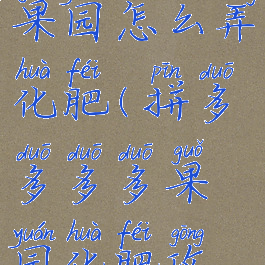 果园怎么弄
huà féi pīn duō
化肥(拼多
duō duō duō guǒ
多多多果
yuán huà féi gōng
园化肥攻